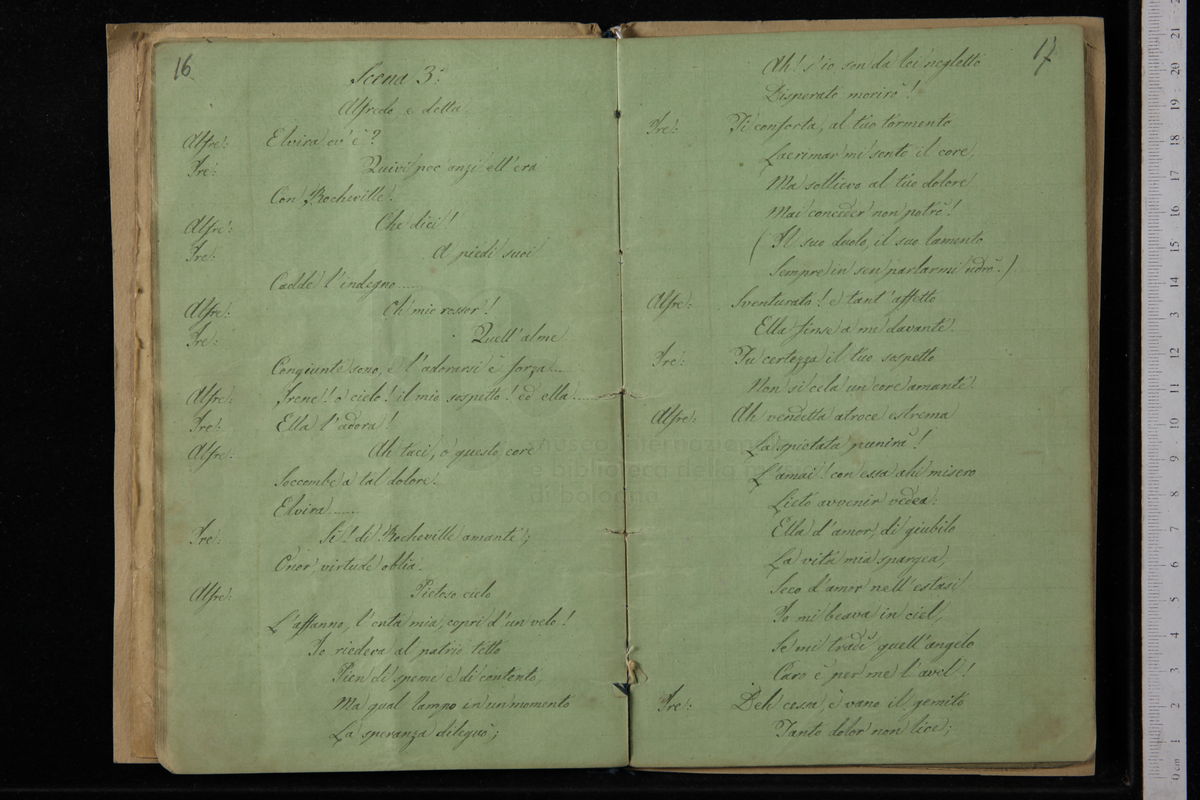 16
Scena 3ª
Alfredo e detta
Alfre: Elvira ov'è?
Ire: Quivi poc'anzi ell'era
Con Rocheville.
Alfre: Che dici!
Ire: A piedi suoi
Cadde l'indegno.....
Alfre: Oh mio rossor!
Ire: Quell'alme
Congiunte sono, e l'adorarsi è forza...
Alfre: Irene! o cielo! il mio sospetto! ed ella.....
Ire: Ella l'adora!
Alfre: Ah taci, o questo core
Soccombe a tal dolore.
Elvira.....
Ire: Si! di Rocheville amante;
Onor, virtude oblia.
Alfre: Pietoso cielo
L'affanno, l'onta mia, copri d'un velo!
Io riedeva al patrio tetto
Pien di speme e di contento,
Ma qual lampo in un momento
La speranza dileguò;
17
Ah! s'io son da lei negletto
Disperato morirò!
Ire: Ti conforta, al tuo tormento
Lacrimar mi sento il core,
Ma sollievo al tuo dolore
Mai conceder non potrò!
(Il suo duolo, il suo lamento
Sempre in sen parlarmi udrò.)
Alfre: Sventurato! e tant'affetto
Ella finse a me davante.
Ire: Fu certezza il tuo sospetto
Non si cela un core amante.
Alfre: Ah vendetta atroce estrema
La spietata punirà!
L'amai! con essa ahi misero
Lieto avvenir vedea:
Ella d'amor, di giubilo
La vita mia spargea,
Seco d'amor nell'estasi
Io mi beava in ciel,
Se mi tradì quell'angelo
Caro è per me l'avel!
Ire: Deh cessa, è vano il gemito
Tanto dolor non lice;
museo internazionale
e biblioteca della
di bologna
0 cm 1 2 3 4 5 6 7 8 9 10 11 12 13 14 15 16 17 18 19 20 21